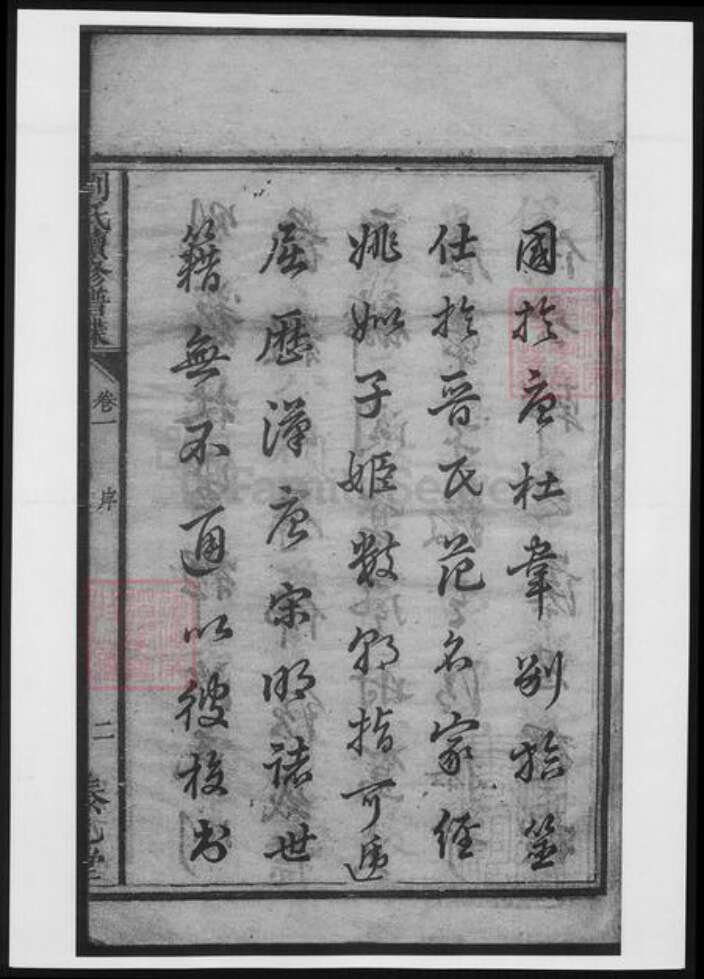 國於唐杜韋別於筮
仕於晉氏范名家經
姚姒子姬數朝指可遞
屈歷漢唐宋明諸世
籍無不通以彼校書
劉氏續修譜牒
卷一
序
二